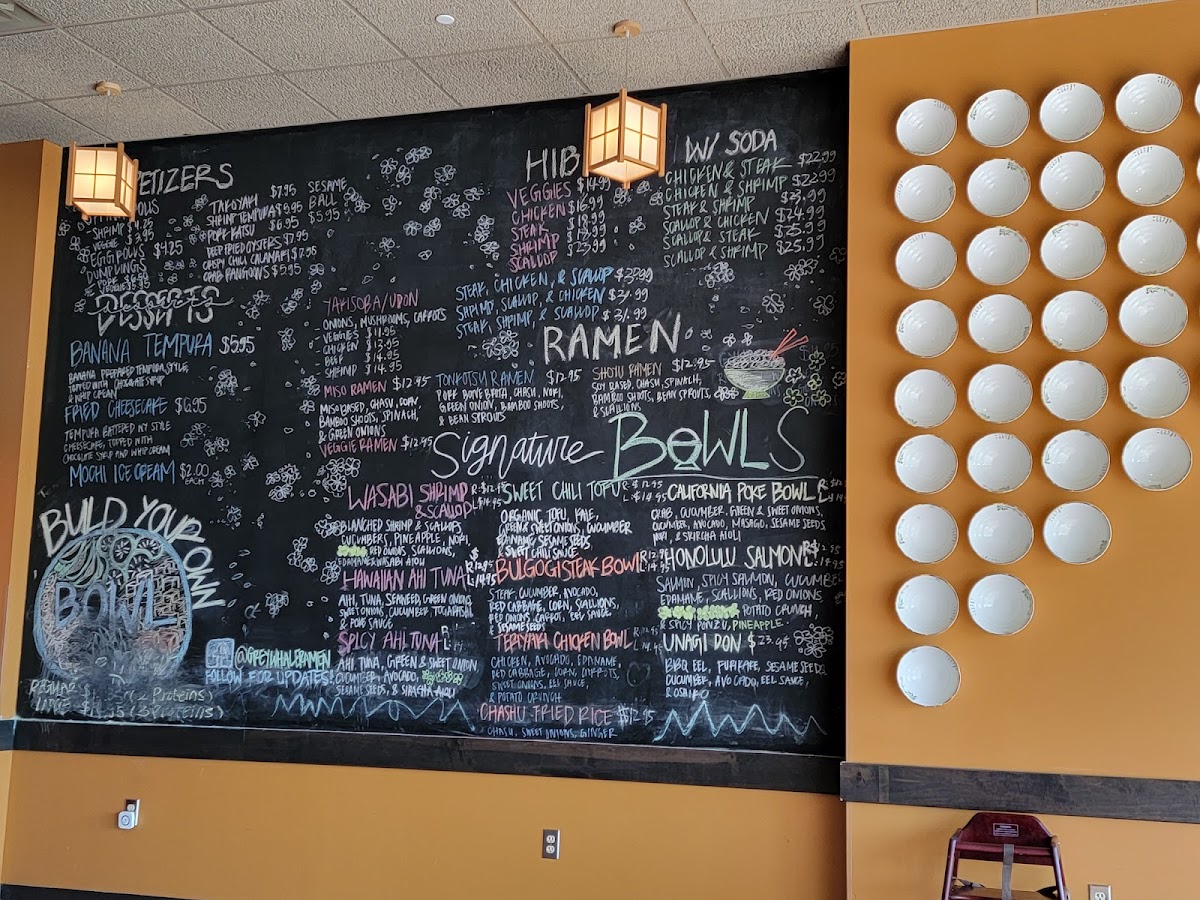 ETIZERS
SHRIMP $4.25
VEGGIE $3.95
EGG ROLLS $4.25
DUMPLINGS
TAKOYAKI $7.95
SHRIMP TEMPURA $9.95
PORK KATSU $6.95
DEEP FRIED OYSTERS $7.95
CRISPY CHILI CALAMARI $7.95
CRAB RANGOONS $5.95
SESAME
BALL
$5.95
DESSERTS
BANANA TEMPURA $5.95
BANANA PREPARED TEMPURA STYLE,
TOPPED WITH CHOCOLATE SYRUP
& WHIP CREAM
FRIED CHEESECAKE $6.95
TEMPURA BATTERED NY STYLE
CHEESECAKE, TOPPED WITH
CHOCOLATE SYRUP AND WHIP CREAM
MOCHI ICE CREAM $2.00
EACH
BUILD YOUR OWN
BOWL
(2 Proteins)
(3 Proteins)
@GREYWHALERAMEN
FOLLOW FOR UPDATES!
HIB
VEGGIES $14.99
CHICKEN $16.99
STEAK
SHRIMP
SCALLOP
W/ SODA
CHICKEN & STEAK $22.99
CHICKEN & SHRIMP $22.99
STEAK & SHRIMP $23.99
SCALLOP & CHICKEN $24.99
SCALLOP & STEAK $25.99
SCALLOP & SHRIMP $25.99
STEAK, CHICKEN, & SCALLOP
SHRIMP, SCALLOP, & CHICKEN $31.99
STEAK, SHRIMP, & SCALLOP $31.99
YAKISOBA/UDON
ONIONS, MUSHROOMS, CARROTS
VEGGIE $11.95
CHICKEN $13.95
BEEF $14.95
SHRIMP $14.95
RAMEN
MISO RAMEN $12.95
MISO BASED, CHASU, CORN,
BAMBOO SHOOTS, SPINACH,
& GREEN ONIONS
VEGGIE RAMEN $12.95
TONKOTSU RAMEN $12.95
PORK BONE BROTH, CHASU, NORI,
GREEN ONION, BAMBOO SHOOTS,
& BEAN SPROUTS
SHOYU RAMEN $12.95
SOY BASED, CHASU, SPINACH,
BAMBOO SHOOTS, BEAN SPROUTS,
& SCALLIONS
Signature BOWLS
WASABI SHRIMP
& SCALLOP
BLANCHED SHRIMP & SCALLOPS
CUCUMBERS, PINEAPPLE, NORI,
RED ONIONS, SCALLIONS,
EDAMAME & WASABI AIOLI
HAWAIIAN AHI TUNA
AHI TUNA, SEAWEED, GREEN ONIONS,
SWEET ONIONS, CUCUMBER, TOGARASHI,
& POKE SAUCE
SPICY AHI TUNA
AHI TUNA, GREEN & SWEET ONION
CUCUMBER, AVOCADO,
SESAME SEEDS, & SIRACHA AIOLI
SWEET CHILI TOFU
ORGANIC TOFU, KALE,
GREEN & SWEET ONIONS, CUCUMBER
EDAMAME, SESAME SEEDS,
& SWEET CHILI SAUCE
BULGOGI STEAK BOWL
STEAK, CUCUMBER, AVOCADO,
RED CABBAGE, CORN, SCALLIONS,
RED ONIONS, CARROTS, EEL SAUCE
& SESAME SEEDS
TERIYAKI CHICKEN BOWL
CHICKEN, AVOCADO, EDAMAME,
RED CABBAGE, CORN, CARROTS,
SWEET ONIONS, EEL SAUCE,
& POTATO CRUNCH
CHASHU FRIED RICE $12.95
CHASU, SWEET ONIONS, GINGER
CALIFORNIA POKE BOWL
CRAB, CUCUMBER, GREEN & SWEET ONIONS,
AVOCADO, MASAGO, SESAME SEEDS
NORI, & SIRACHA AIOLI
HONOLULU SALMON
SALMON, SPICY SALMON, CUCUMBER
EDAMAME, SCALLIONS, RED ONIONS
POTATO CRUNCH
& SPICY PONZU, PINEAPPLE
UNAGI DON $23.95
BBQ EEL, FURIKAKE, SESAME SEEDS
CUCUMBER, AVOCADO, EEL SAUCE,
& OSHIKO